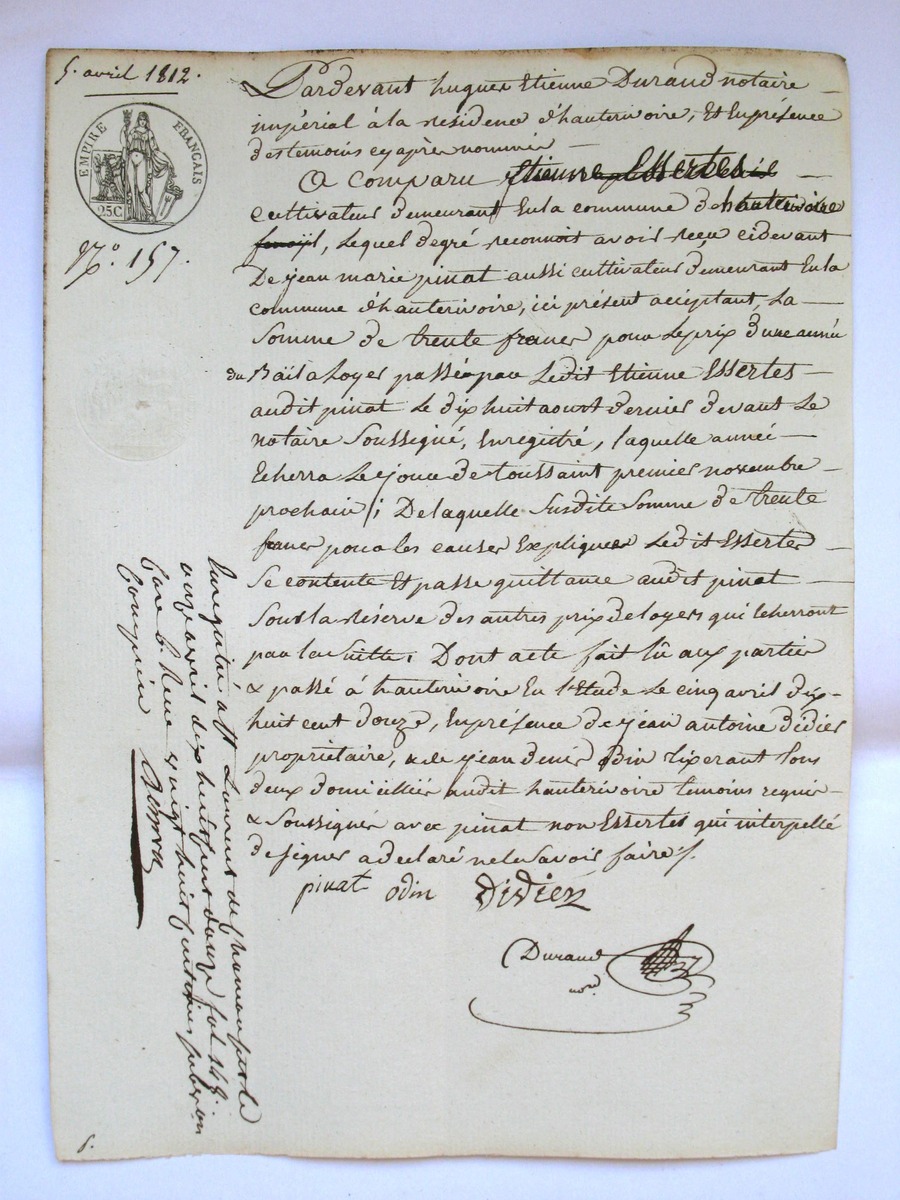 5. avril 1812.
EMPIRE FRANÇAIS
25C
N.o 157.
Pardevant hugues Etienne Durand notaire
impérial à la residence d'hauterivoire, Et Enprésence
destemoins cyaprès nommés
a Comparu Etienne Essertes
cultivateur demeurant Enla commune de hauterivoire
, Lequel degré reconnoit avoir reçu cidevant
De jean marie pinat aussi cultivateur demeurant Enla
commune d'hauterivoire, ici présent acceptant, La
Somme de trente francs pour Leprix d'une année
du Bail a Loyer passé par Ledit Etienne Essertes
audit pinat Le dix huit aoust dernier devant Le
notaire Soussigné, Enregistré, laquelle année
Echerra Lejour de toussaint premier novembre
prochain ; Delaquelle Susdite Somme de trente
francs pour les causes Expliquées Ledit Essertes
Se contente Et passe quittance audit pinat
Sous la réserve des autres prix deloyers qui Echerront
par la Suitte. Dont acte fait lû aux parties
& passé à hauterivoire En l'Etude Le cinq avril dix-
huit cent douze, Enprésence de jean antoine didier
propriétaire, & de jean denis odin tixerant tous
deux domicilliés audit hauterivoire temoins requis
& Soussignés avec pinat non Essertes qui interpellé
designer a declaré nele Savoir faire ./.
pinat odin Didier
Durand
no.re
Enregistré à St Laurent de chamousset le
onze avril dix huit cent douze fol. 148.
Case 6. Reçu vingt huit centimes subvon
Comprise
6.